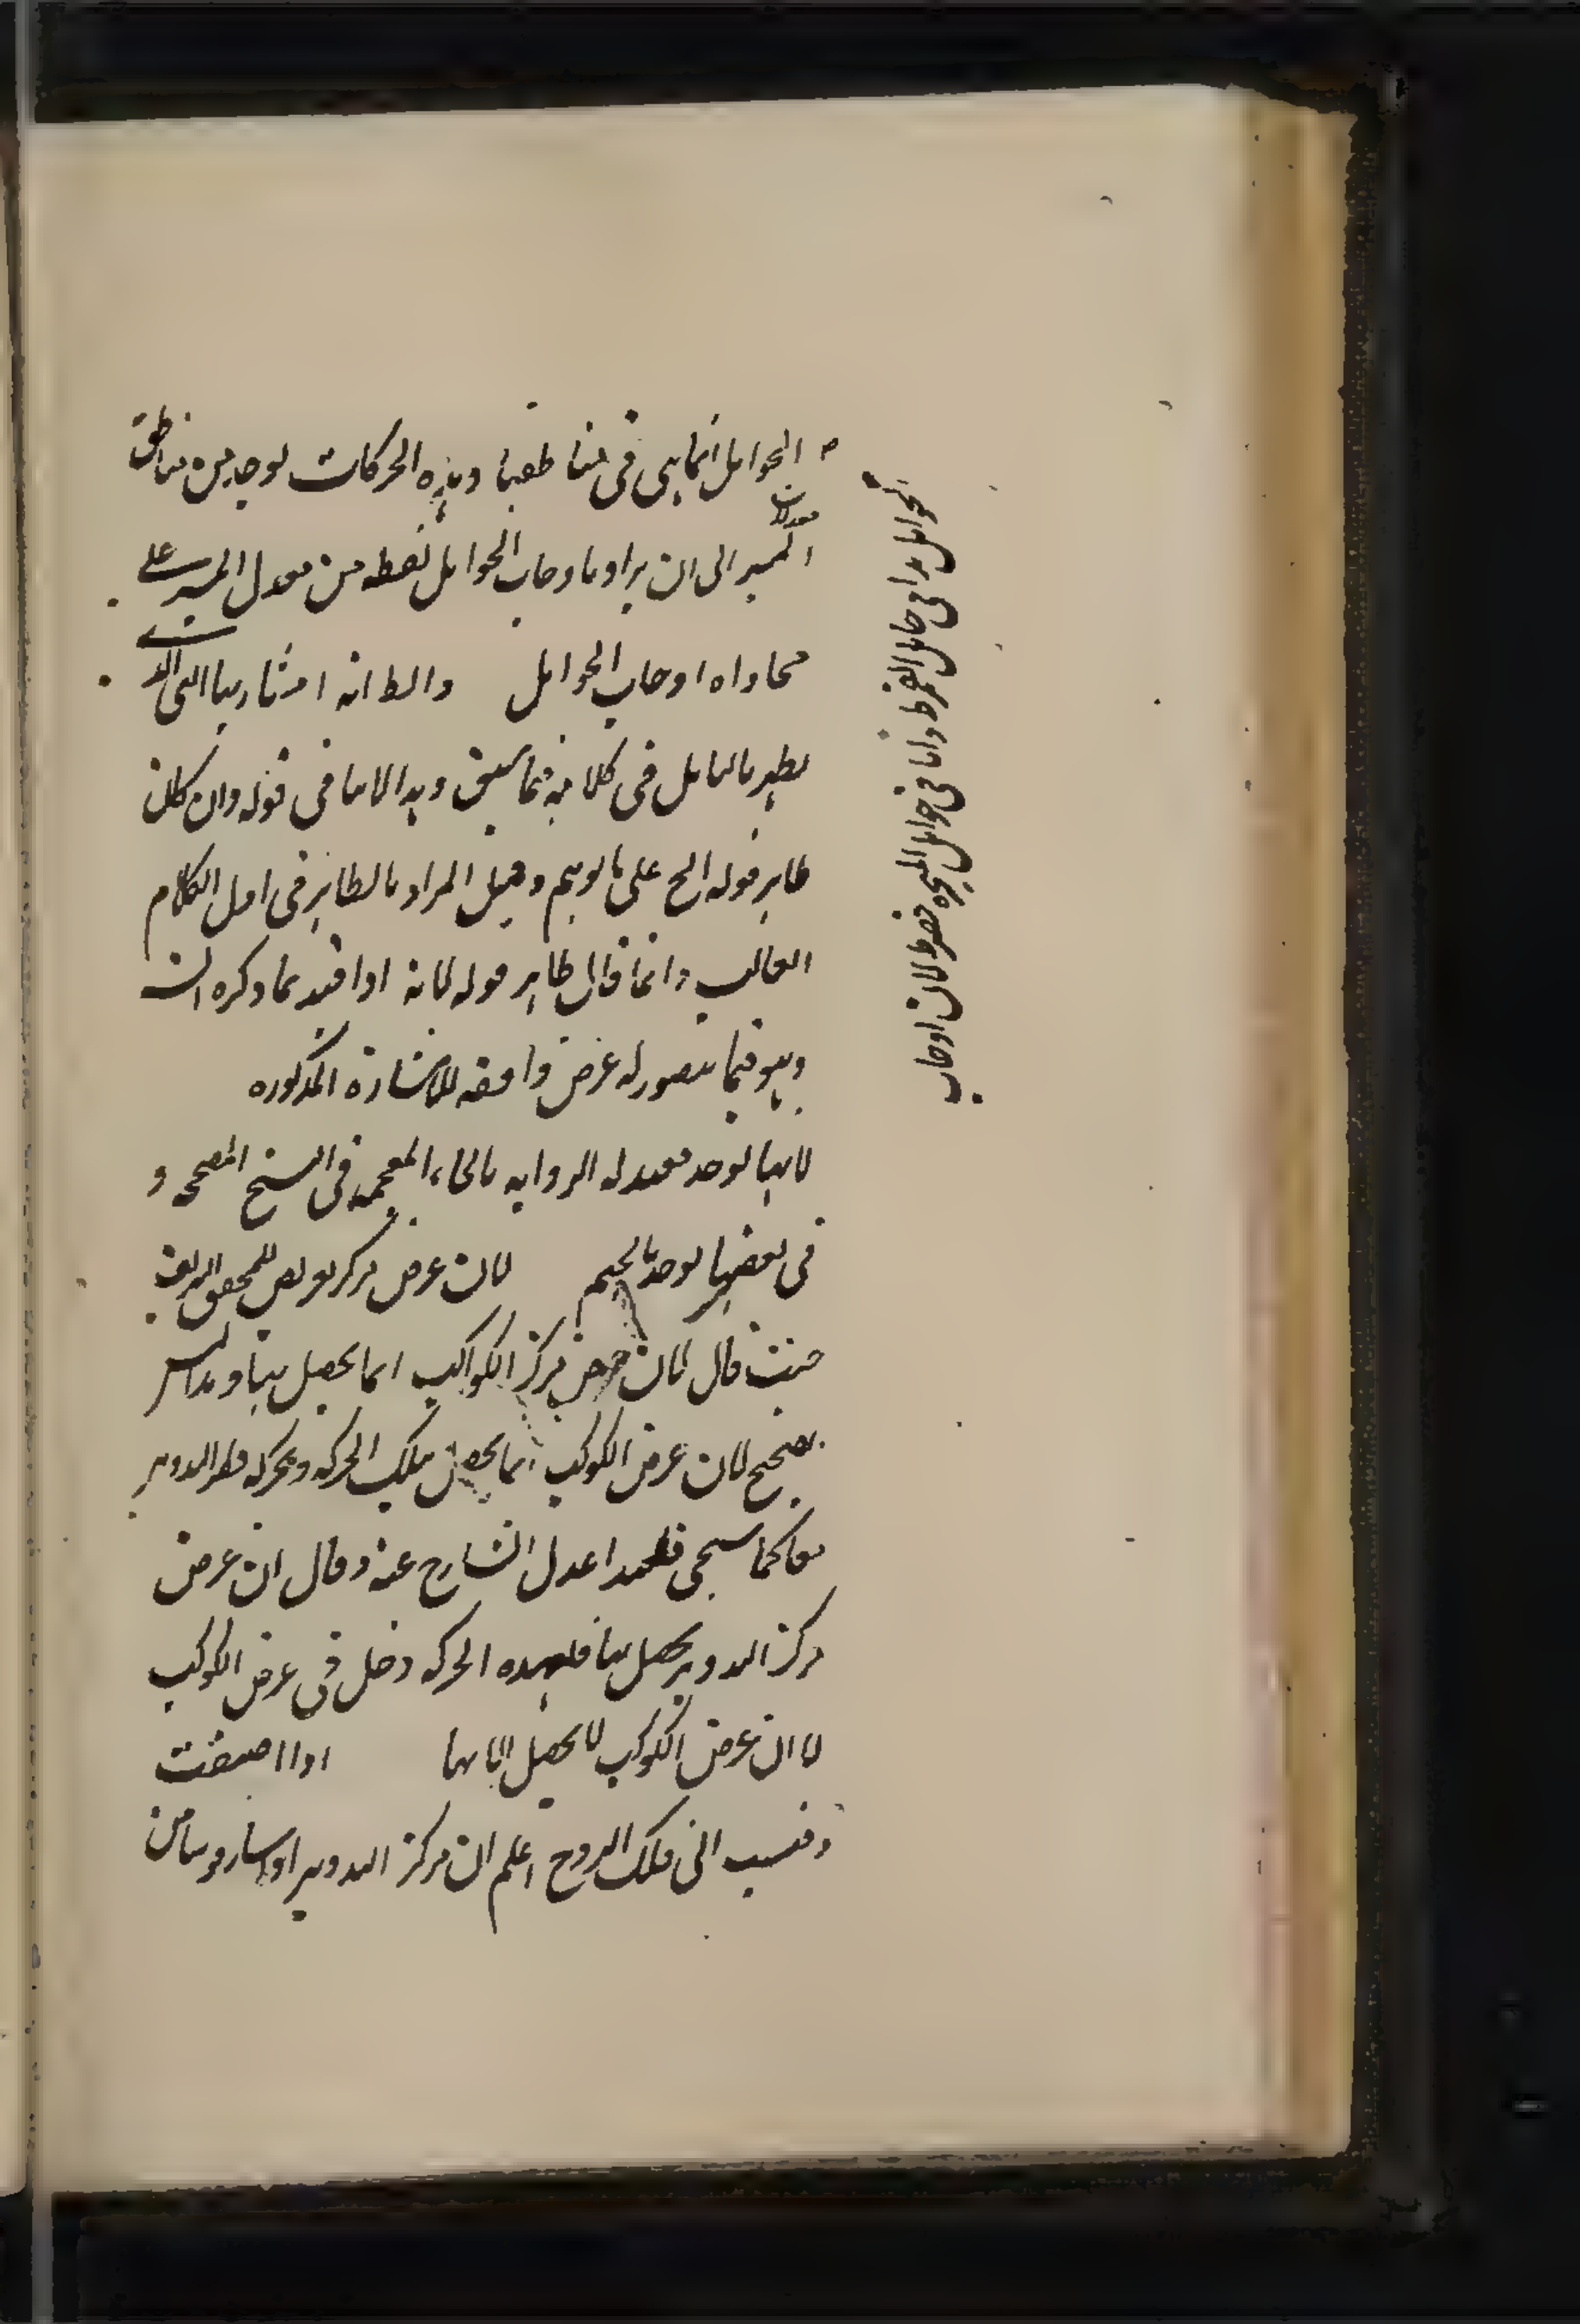 الحوامل انما هى فى مناطقها وهذه الحركات توجد من مناطق
معدلات
المسير الى ان يراد بماوجات الحوامل نقطه من معدل المسير على
محاذاه اوجات الحوامل والظ انه اشار بها الى
يظهر بالتامل فى كلامه فيما سبق وهذا لاينافى قوله وان كان
ظاهر قوله الخ على ما توهم وقيل المراد بالظاهر فى اول الكلام
الغالب وانما قال ظاهر قوله لانه اذا قيد بما ذكره الش
وهو فيما يتصور له عرض وافقه للاشارة المذكوره
لانها توجد معدله الروايه بالخاء المعجمه فى النسخ المصححه و
فى بعضها يوجد بالجيم لان عرض مركز تعريض للمحقق الشريف
حيث قال لان عرض مركز الكواكب انما يحصل بها وهذا ليس
بصحيح لان عرض الكوكب انما يحصل بتلك الحركه وبحركه قطر التدوير
معا كما سيجى فلهذا عدل الشارح عنه وقال ان عرض
مركز التدوير يحصل بها فلهذه الحركه دخل فى عرض الكوكب
لا ان عرض الكوكب لا يحصل الا بها اذا اضيفت
ونسب الى فلك البروج اعلم ان مركز التدوير اذا سار قوسا من
الحوامل هذا فى حامل القمر ظ واما فى حوامل المتحيره ففيه نظر لان اوجات